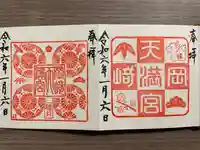 奉拝
岡崎
天満宮
令和六年一月六日
奉拝
令和六年一月六日